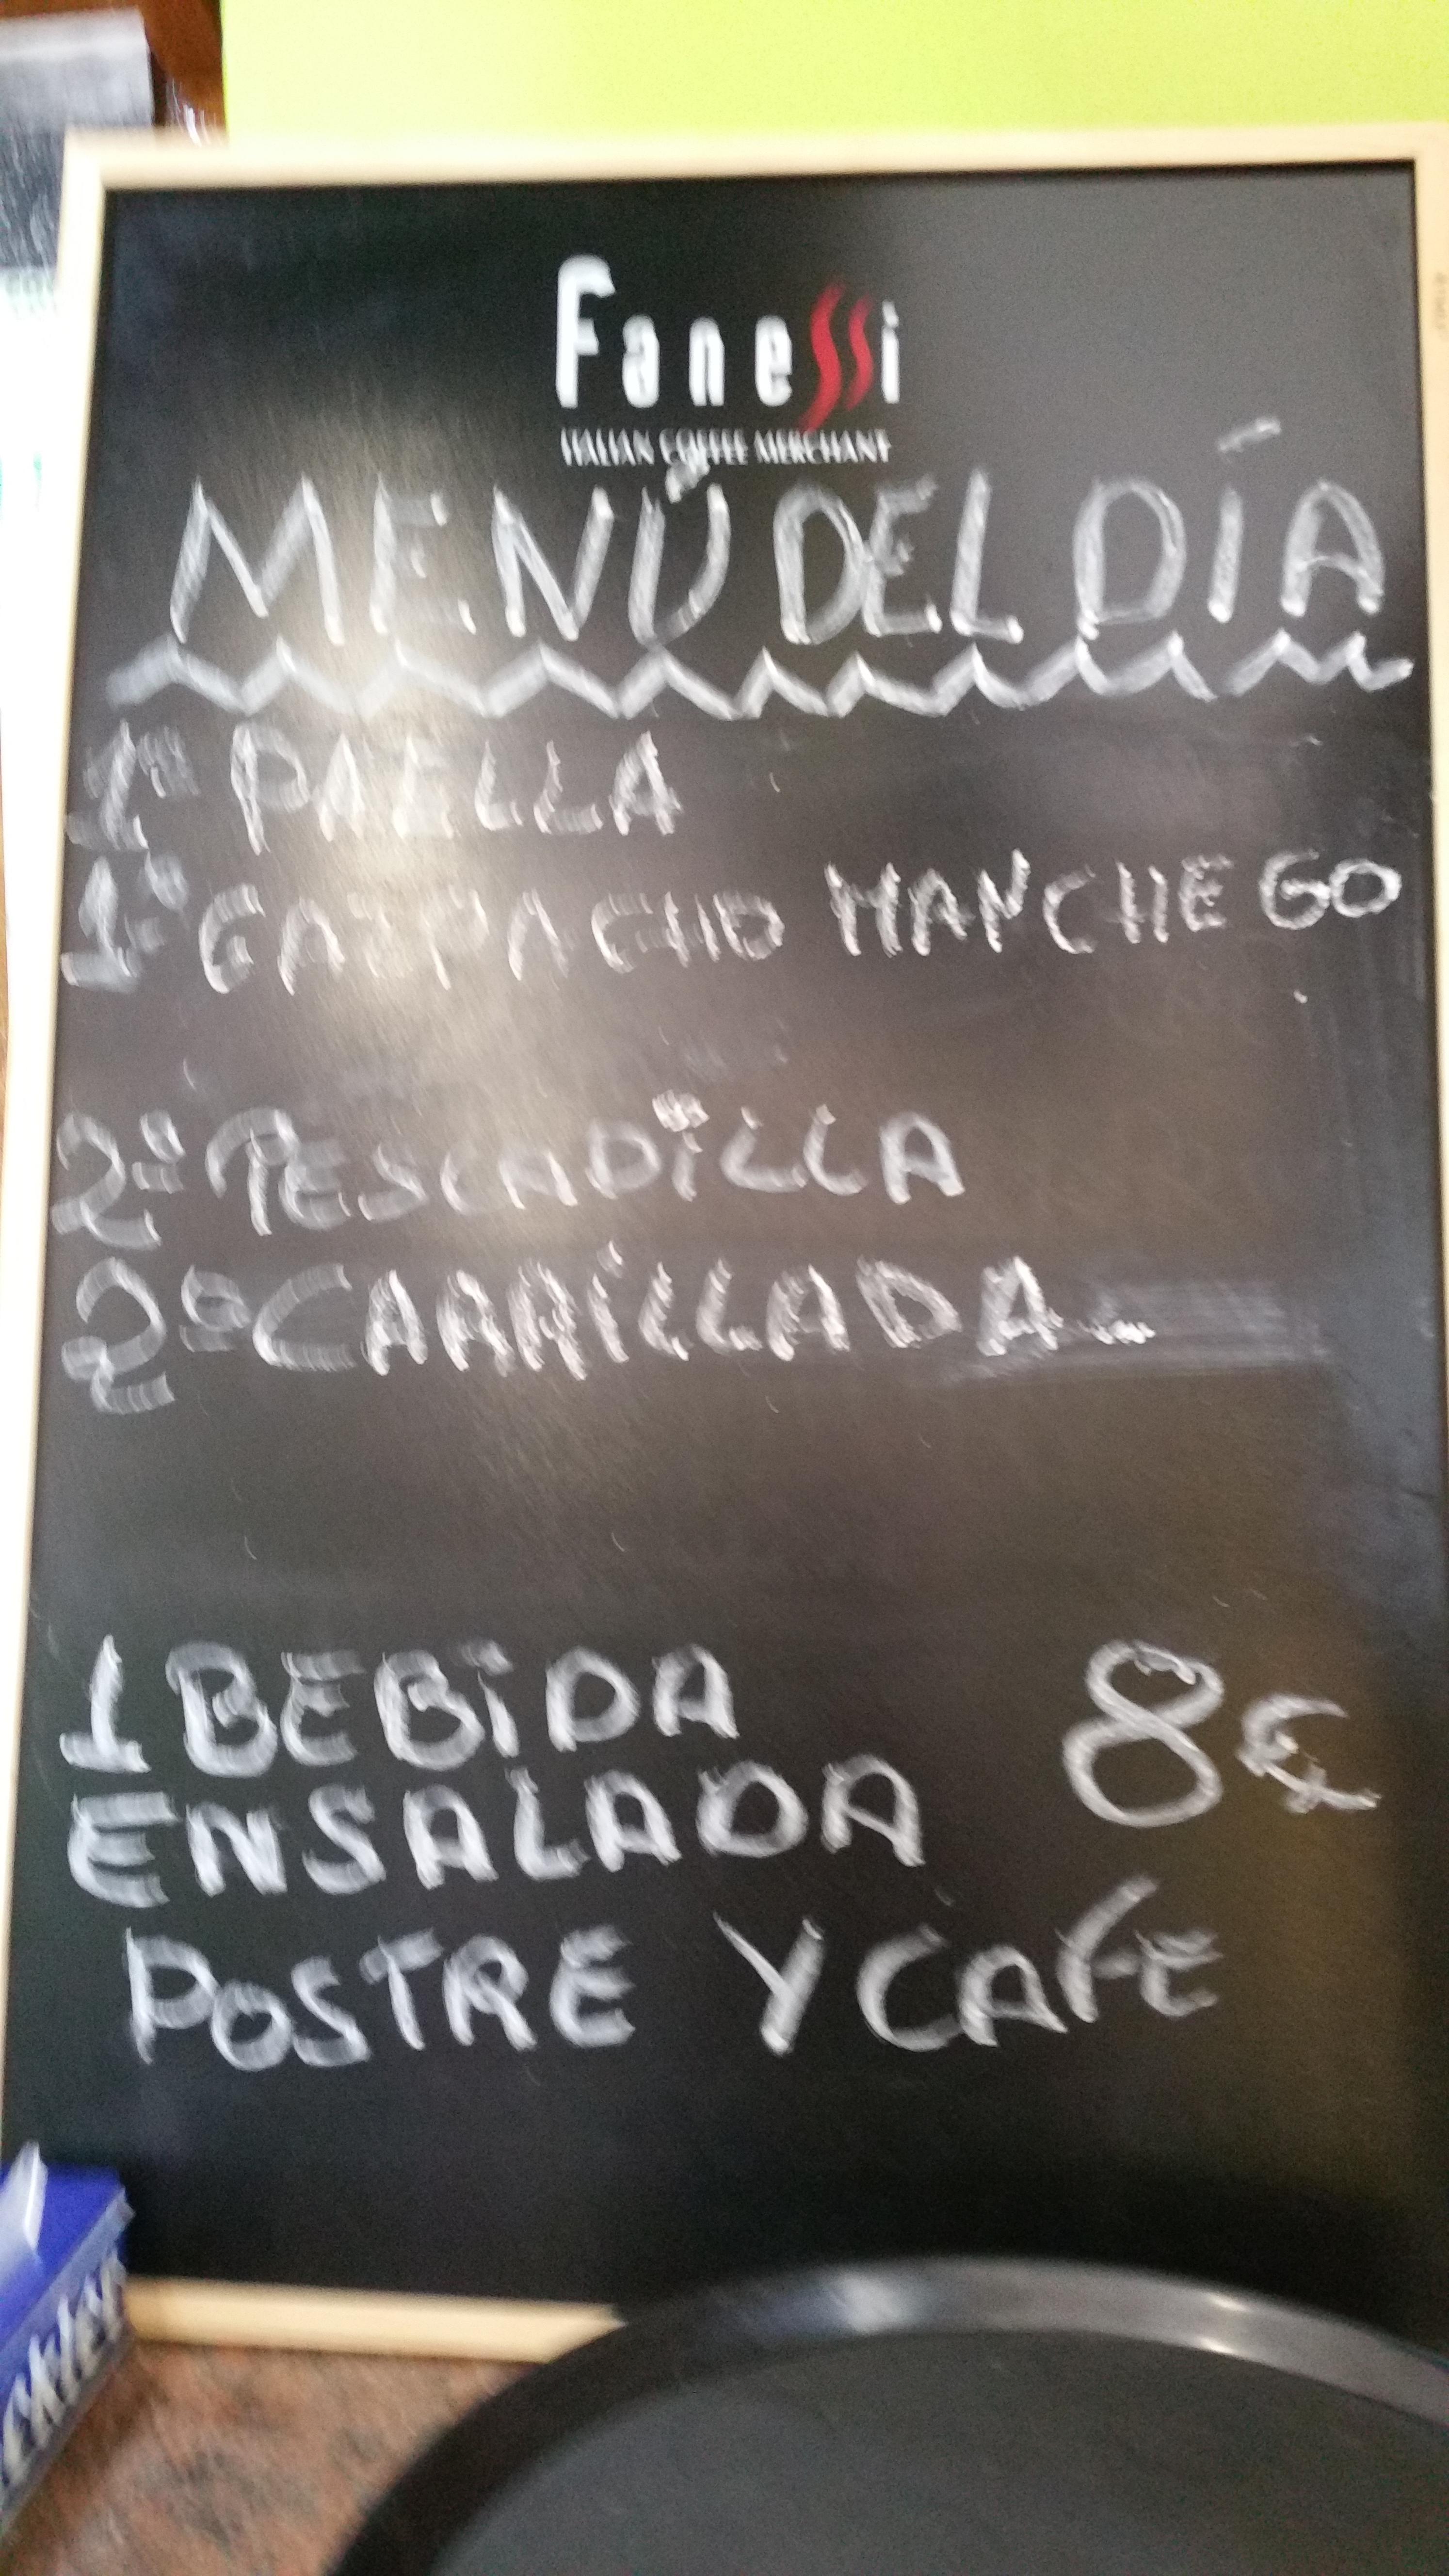 Fanessi
ITALIAN COFFEE MERCHANT
MENÚ DEL DÍA
1º PAELLA
1º GAZPACHO MANCHEGO
2º PESCADILLA
2º CARRILLADA...
1 BEBIDA
8€
ENSALADA
POSTRE Y CAFE